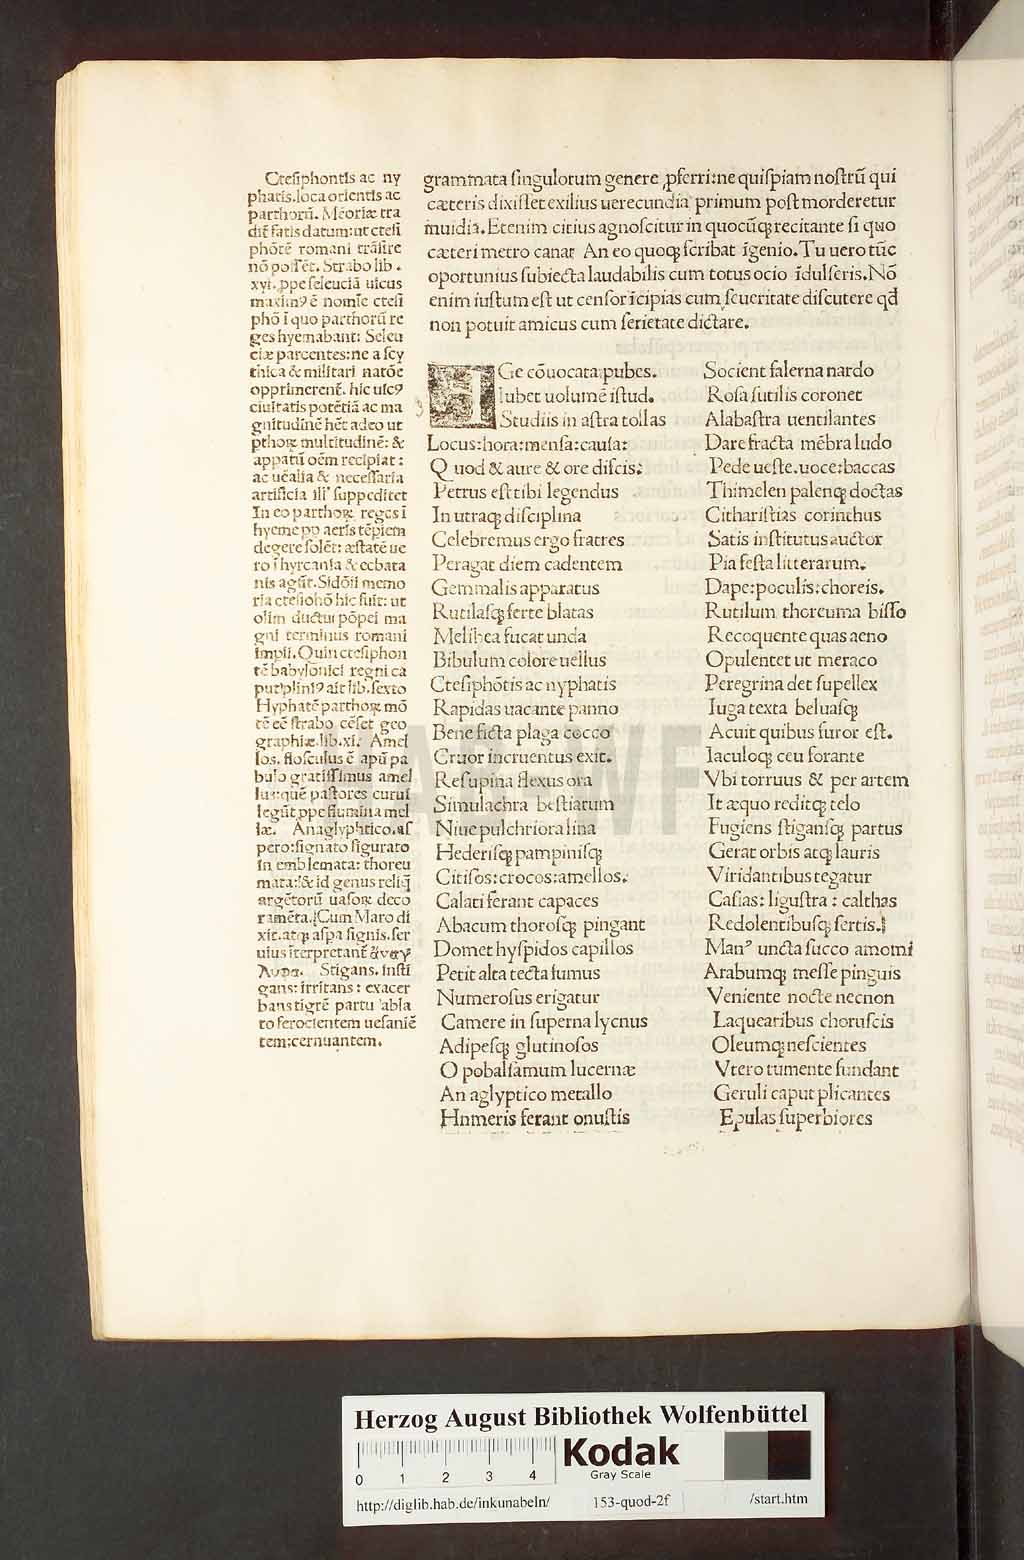 Ctesiphontis ac ny
phatis.loca orientis ac
parthorū. Mēoriæ tra
dit̄ fatis datum:ut ctesi
phōtē romani trāsire
nō possēt. Strabo lib .
xvi. ppe seleuciā uicus
maximꝰ ē nomīe ctesi
phō ī quo parthorū re
ges hyemabant: Seleu
ciæ parcentes:ne a scy
thica & militari natōe
opprimerent̄. hic uicꝰ
ciuitatis potētiā ac ma
gnitudinē hēt adeo ut
pthoꝝ multitudinē: &
appatū oēm recipiat :
ac uēalia & necessaria
artificia illi' suppeditet
In eo parthoꝝ reges ī
hyeme pp aeris tēpiem
degere solēt: æstatē ue
ro ī hyrcania & ecbata
nis agūt. Sidōii memo
ria ctesiohō hic fuit: ut
olim ductui pōpei ma
gni terminus romani
impīi. Quin ctesiphon
tē babylonici regni ca
put plinīꝰ ait lib. sexto
Hyphatē parthoꝝ mō
tē eē strabo cēset geo
graphiæ.lib.xi. Amel
los. flosculus ē apū pa
bulo gratissimus amel
lus:quē pastores curui
legūt ppe flumina mel
læ. Anaglyphtico.as
pero:signato figurato
in emblemata: thoreu
mata:& id genus reliq̄
argētorū uasoꝝ deco
ramēta. Cum Maro di
xit.atqꝫ aspa signis.ser
uius īterpretant̄ ἄναγ
λυπα. Stigans. insti
gans: irritans : exacer
bans tigrē partu abla
to ferocientem uesaniē
tem:cernuantem.
grammata singulorum genere pferri:ne quispiam nostrū qui
cæteris dixisset exilius uerecundia primum post morderetur
inuidia. Etenim citius agnoscitur in quocūqꝫ recitante si quo
cæteri metro canat An eo quoqꝫ scribat īgenio. Tu uero tūc
oportunius subiecta laudabilis cum totus ocio īdulseris. Nō
enim iustum est ut censor īcipias cum seueritate discutere qd̄
non potuit amicus cum serietate dictare.
AGe cōuocata pubes.
Iubet uolumē istud.
Studiis in astra tollas
Locus:hora:mensa:causa:
Quod & aure & ore discis:
Petrus est tibi legendus
In utraqꝫ disciplina
Celebremus ergo fratres
Peragat diem cadentem
Gemmalis apparatus
Rutilasqꝫ ferte blatas
Melibea fucat unda
Bibulum colore uellus
Ctesiphōtis ac nyphatis
Rapidas uacante panno
Bene ficta plaga cocco
Cruor incruentus exit.
Resupina flexus ora
Simulachra bestiarum
Niue pulchriora lina
Hederisqꝫ pampinisqꝫ
Citisos:crocos:amellos:
Calati ferant capaces
Abacum thorosqꝫ pingant
Domet hyspidos capillos
Petit alta tecta fumus
Numerosus erigatur
Camere in superna lycnus
Adipesqꝫ glutinosos
O pobalsamum lucernæ
An aglyptico metallo
Hnmeris ferant onustis
Socient falerna nardo
Rosa sutilis coronet
Alabastra uentilantes
Dare fracta mēbra ludo
Pede ueste.uoce:baccas
Thimelen palenqꝫ doctas
Citharistias corinthus
Satis institutus auctor
Pia festa litterarum.
Dape:poculis:choreis.
Rutilum thoreuma bisso
Recoquente quas aeno
Opulentet ut meraco
Peregrina det supellex
Iuga texta beluasqꝫ
Acuit quibus furor est.
Iaculoqꝫ ceu forante
Vbi torruus & per artem
It æquo reditqꝫ telo
Fugiens stigansqꝫ partus
Gerat orbis atqꝫ lauris
Viridantibus tegatur
Casias: ligustra : calthas
Redolentibusqꝫ sertis.
Manꝰ uncta succo amomi
Arabumqꝫ messe pinguis
Veniente nocte necnon
Laquearibus choruscis
Oleumqꝫ nescientes
Vtero tumente fundant
Geruli caput plicantes
Epulas superbiores
HAB WF
Herzog August Bibliothek Wolfenbüttel
Kodak
Gray Scale
0 1 2 3 4
http://diglib.hab.de/inkunabeln/ 153-quod-2f /start.htm